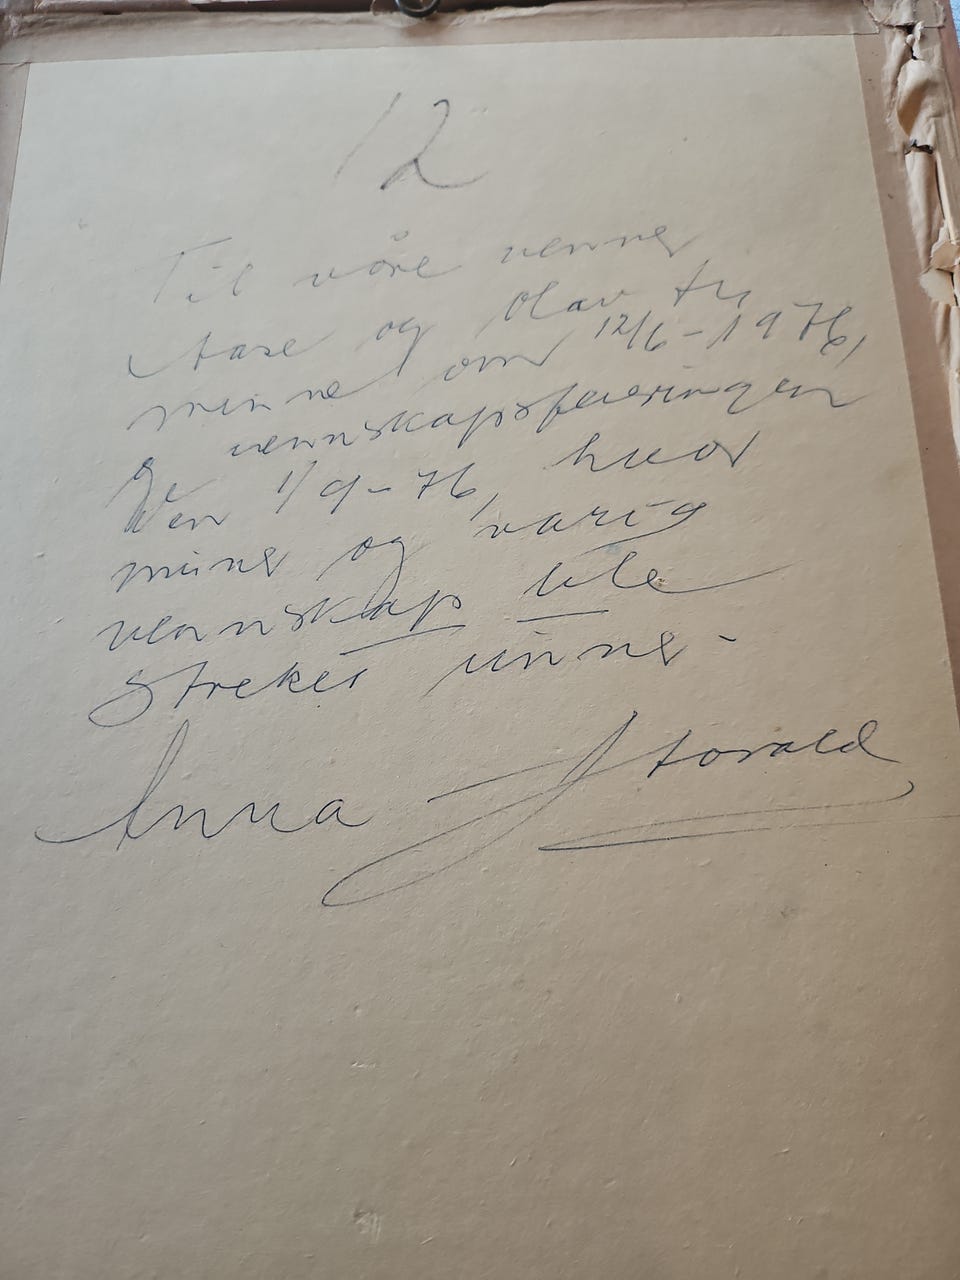 12
Til våre venner
Aase og Olav til
minne om 12/6-1976,
og vennskapsfeieringen
den 1/9-76, hvor
minner og varig
vennskap ble
streket unner-
Anna Storald